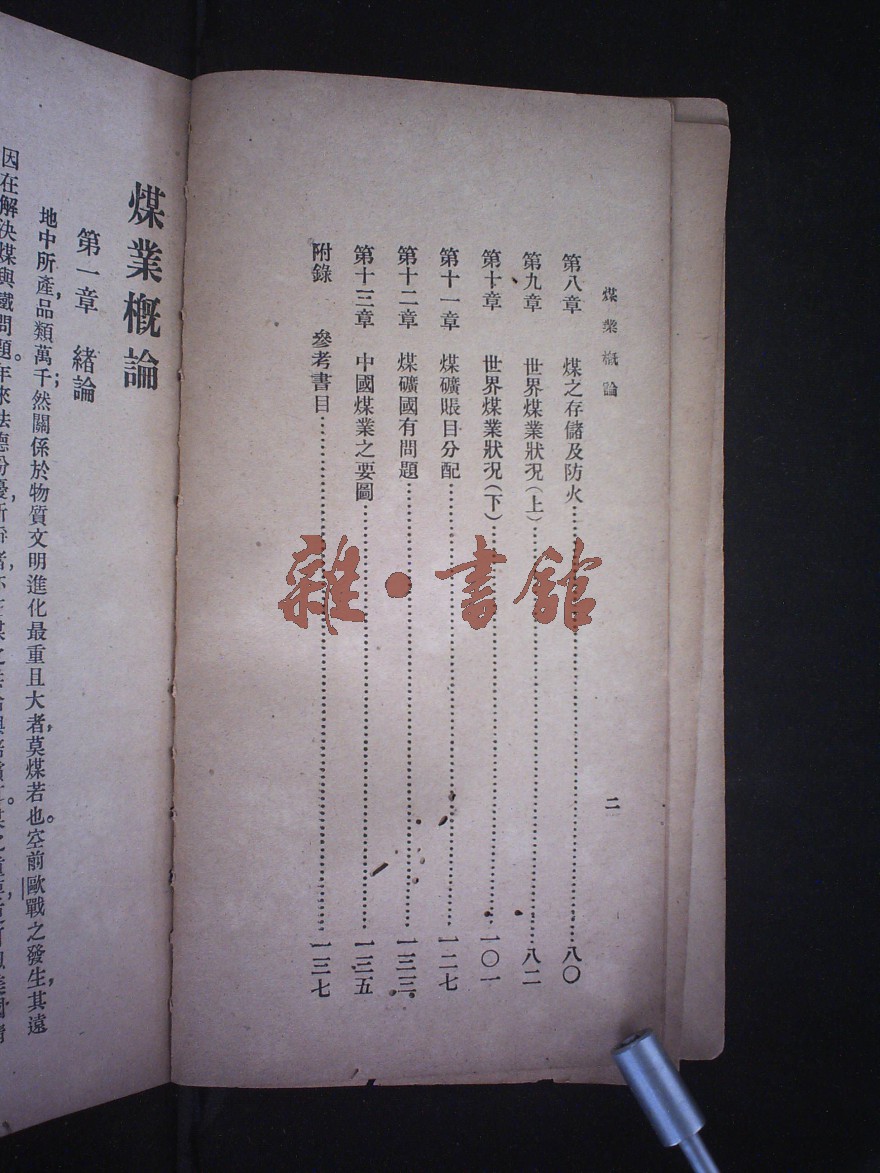 煤業概論
二
第八章　煤之存儲及防火……八〇
第九章　世界煤業狀況(上)……八二
第十章　世界煤業狀況(下)……一〇一
第十一章　煤礦賬目分配……一二七
第十二章　煤礦國有問題……一三三
第十三章　中國煤業之要圖……一三五
附錄　參考書目……一三七
雜·書館
煤業概論
第一章　緒論
地中所產品類萬千然關係於物質文明進化最重且大者,莫煤若也。空前歐戰之發生,其遠
因在解決煤與鐵問題。年來法德紛擾,所